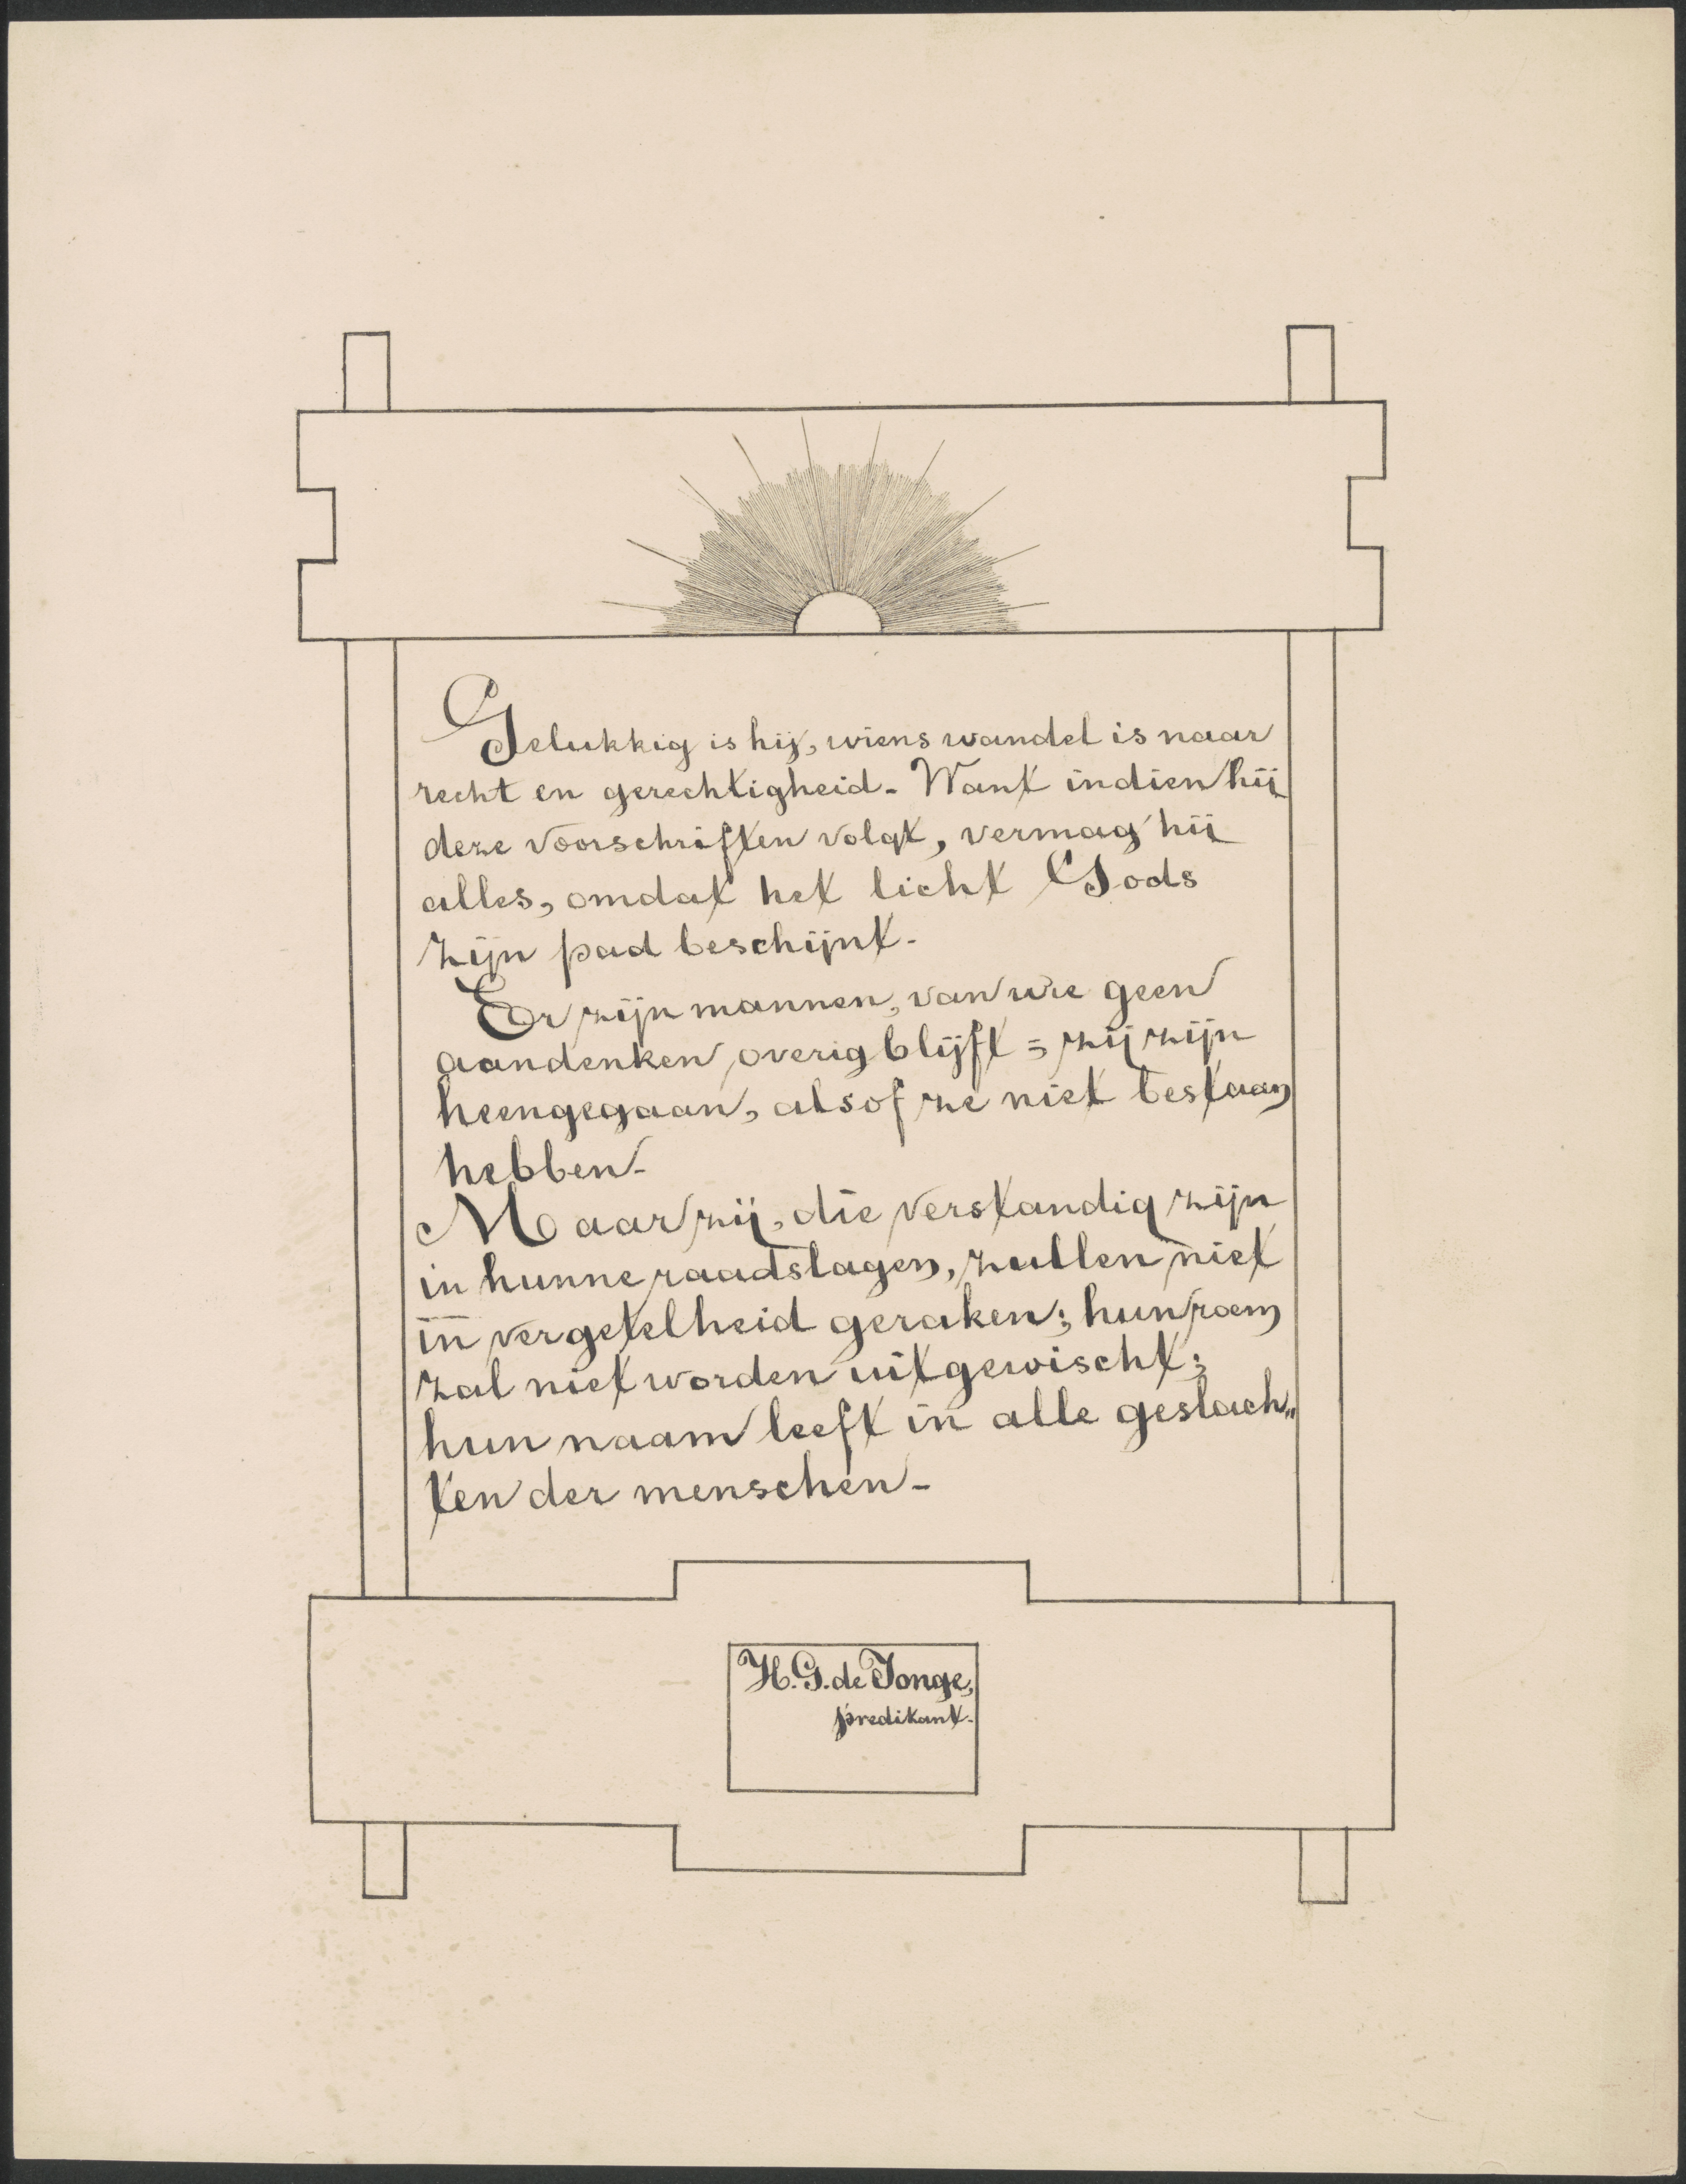 Gelukkig is hij, wiens wandel is naar
recht en gerechtigheid. Want indien hij
deze voorschriften volgt, vermag hij
alles, omdat het licht Gods
zijn pad beschijnt.
Er zijn mannen, van wie geen
aandenken overig blijft; zij zijn
heengegaan, alsof ze niet bestaan
hebben.
Maar zij, die verstandig zijn
in hunne raadslagen, zullen niet
in vergetelheid geraken; hun roem
zal niet worden uitgewischt;
hun naam leeft in alle geslach„
ten der menschen.
H. G. de Jonge,
predikant.